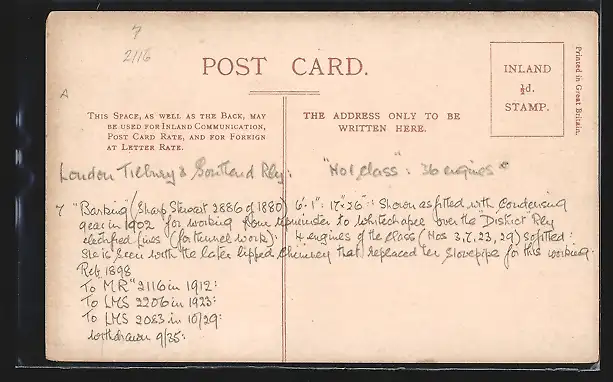 7
2116
A
POST CARD.
THIS SPACE, AS WELL AS THE BACK, MAY
BE USED FOR INLAND COMMUNICATION,
POST CARD RATE, AND FOR FOREIGN
AT LETTER RATE.
THE ADDRESS ONLY TO BE
WRITTEN HERE.
INLAND
½d.
STAMP.
Printed in Great Britain.
London Tilbury & Southend Rly: "No1 class": 36 engines
7 "Barking" (Sharp Stewart 2886 of 1880) 6'-1": 17"x26": Shown as fitted with condensing
gear in 1902 for working from to Whitechapel over the "District" Rly
electrified lines (for tunnel work): 4 engines of the class (Nos 3, 7, 23, 29) so fitted:
She is seen with the later lipped chimney that replaced her stovepipe for this working:
Reb 1898
To MR 2116 in 1912:
To LMS 2206 in 1923:
To LMS 2083 in 10/29:
withdrawn 9/35: